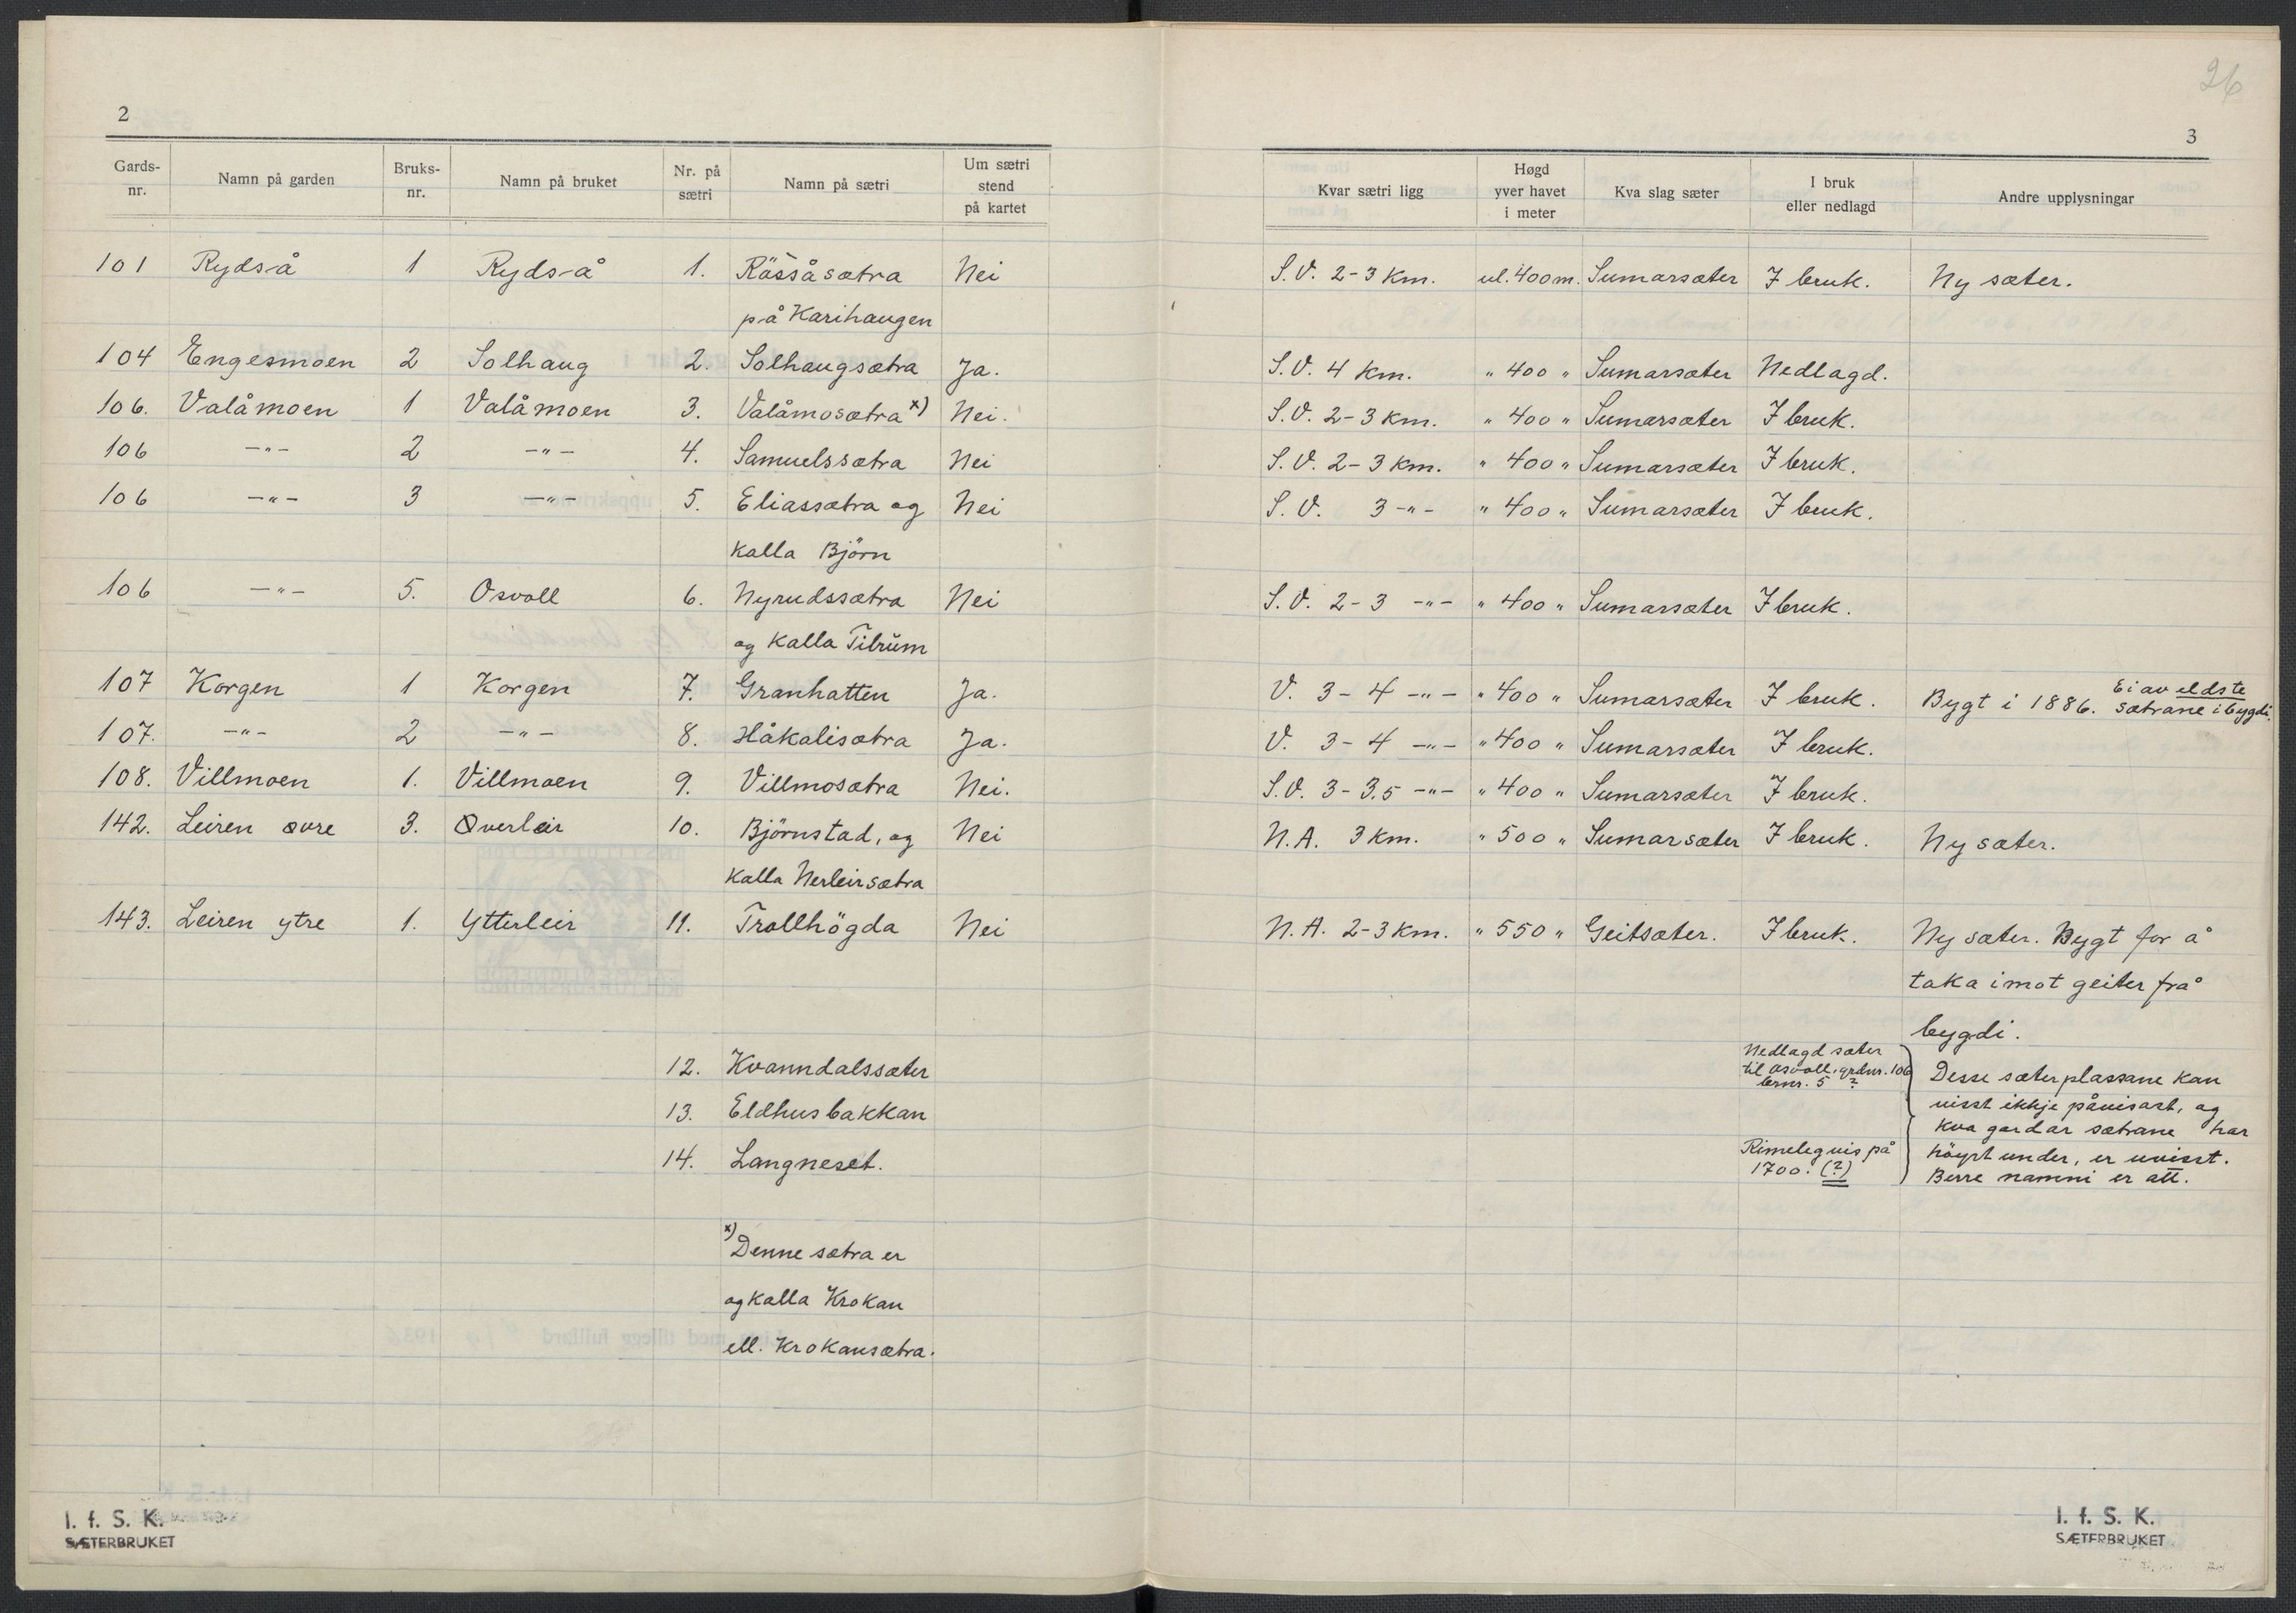 26
2
3
Gards-nr. Namn på garden Bruks-nr. Namn på bruket Nr. på sætri Namn på sætri Um sætri stend på kartet Kvar sætri ligg Høgd yver havet i meter Kva slag sæter I bruk eller nedlagd Andre upplysningar
101 Rydså 1 Rydså 1. Rössåsætra Nei S.V. 2-3 km. ul. 400 m. Sumarsæter I bruk. Ny sæter.
på Karihaugen
104 Engesmoen 2 Solhaug 2. Solhaugsætra Ja. S.V. 4 km. " 400 " Sumarsæter Nedlagd.
106. Valåmoen 1 Valåmoen 3. Valåmosætra x) Nei. S.V. 2-3 km. " 400 " Sumarsæter I bruk.
106 -"- 2 -"- 4. Samuelssætra Nei S.V. 2-3 km. " 400 " Sumarsæter I bruk.
106 -"- 3 -"- 5. Eliassætra og Nei S.V. 3 -"- " 400 " Sumarsæter I bruk.
kalla Björn
106 -"- 5. Osvoll 6. Nyrudssætra Nei S.V. 2-3 -"- " 400 " Sumarsæter I bruk.
og kalla Tibrum
107 Korgen 1 Korgen 7. Granhatten Ja. V. 3-4 -"- " 400 " Sumarsæter I bruk. Bygt i 1886. Ei av eldste sætrane i bygdi.
107. -"- 2 -"- 8. Håkalisætra Ja. V. 3-4 -"- " 400 " Sumarsæter I bruk.
108. Villmoen 1. Villmoen 9. Villmosætra Nei. S.V. 3-3.5 -"- " 400 " Sumarsæter I bruk.
142. Leiren øvre 3. Øverleir 10. Björnstad, og Nei N.A. 3 km. " 500 " Sumarsæter I bruk. Ny sæter.
kalla Nerleirsætra
143. Leiren ytre 1. Ytterleir 11. Trollhögda Nei N.A. 2-3 km. " 550 " Geitsæter. I bruk. Ny sæter. Bygt for å
taka imot geiter frå
bygdi.
12. Kvanndalssæter
13. Eldhusbakkan
14. Langneset.
Nedlagd sæter
til Osvoll, grdnr. 106
brnr. 5 ?
Rimelegvis på
1700. (?)
Desse sæterplassane kan
visst ikkje påvisast, og
kva gardar sætrane har
höyrt under, er uvisst.
Berre namni er att.
x) Denne sætra er
og kalla Krokan
ell. Krokansætra.
I. f. S. K.
SÆTERBRUKET
I. f. S. K.
SÆTERBRUKET